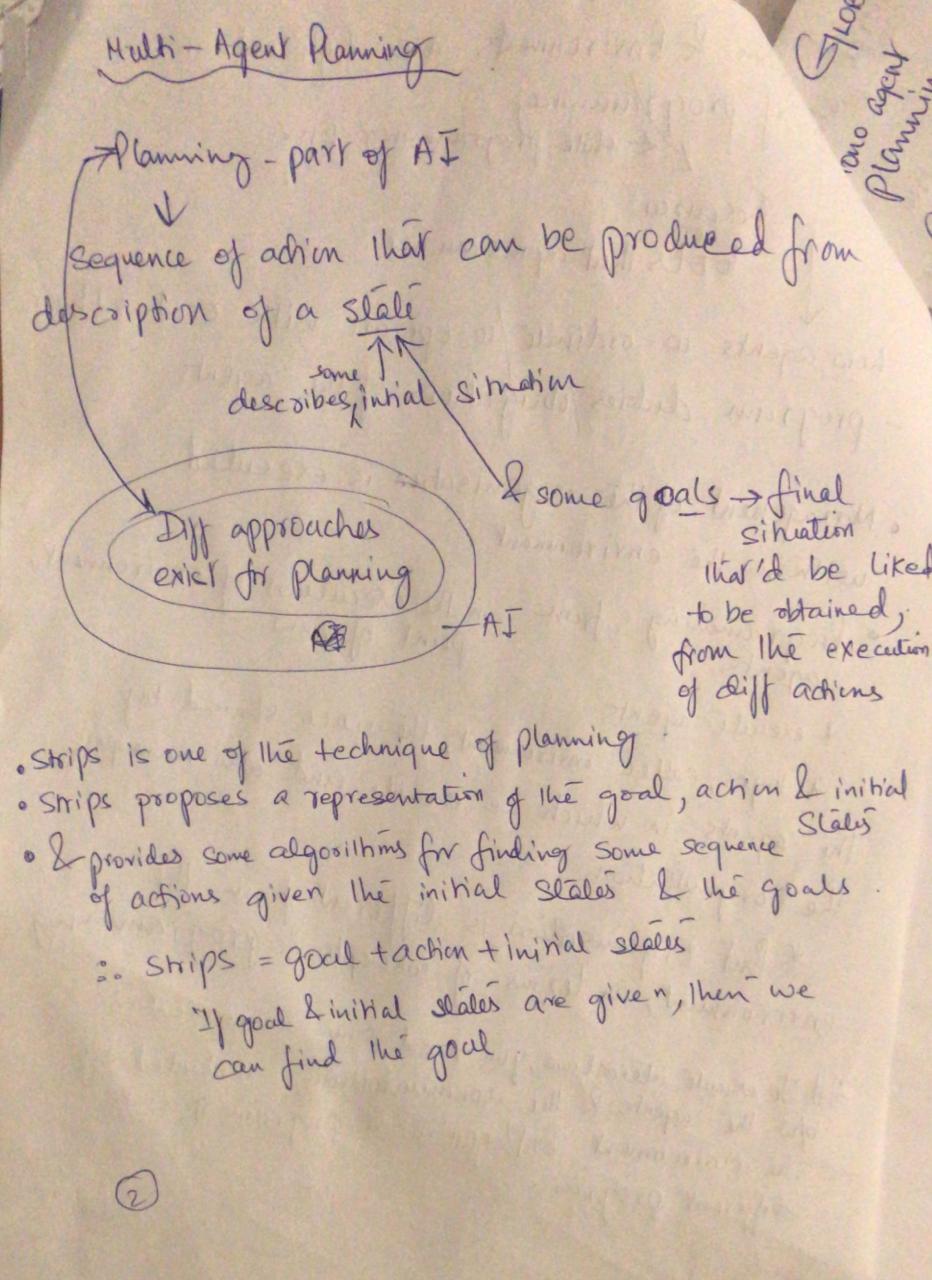 Multi-Agent Planning
Planning - part of AI
sequence of action that can be produced from
description of a state
describes some initial situation
& some goals → final
situation
that'd be liked
to be obtained,
from the execution
of diff actions
Diff approaches
exist for planning
AI
• Strips is one of the technique of planning.
• Strips proposes a representation of the goal, action & initial
states
• & provides some algorithms for finding some sequence
of actions given the initial states & the goals.
∴ Strips = goal + action + initial states
If goal & initial states are given, then we
can find the goal.
2
agent